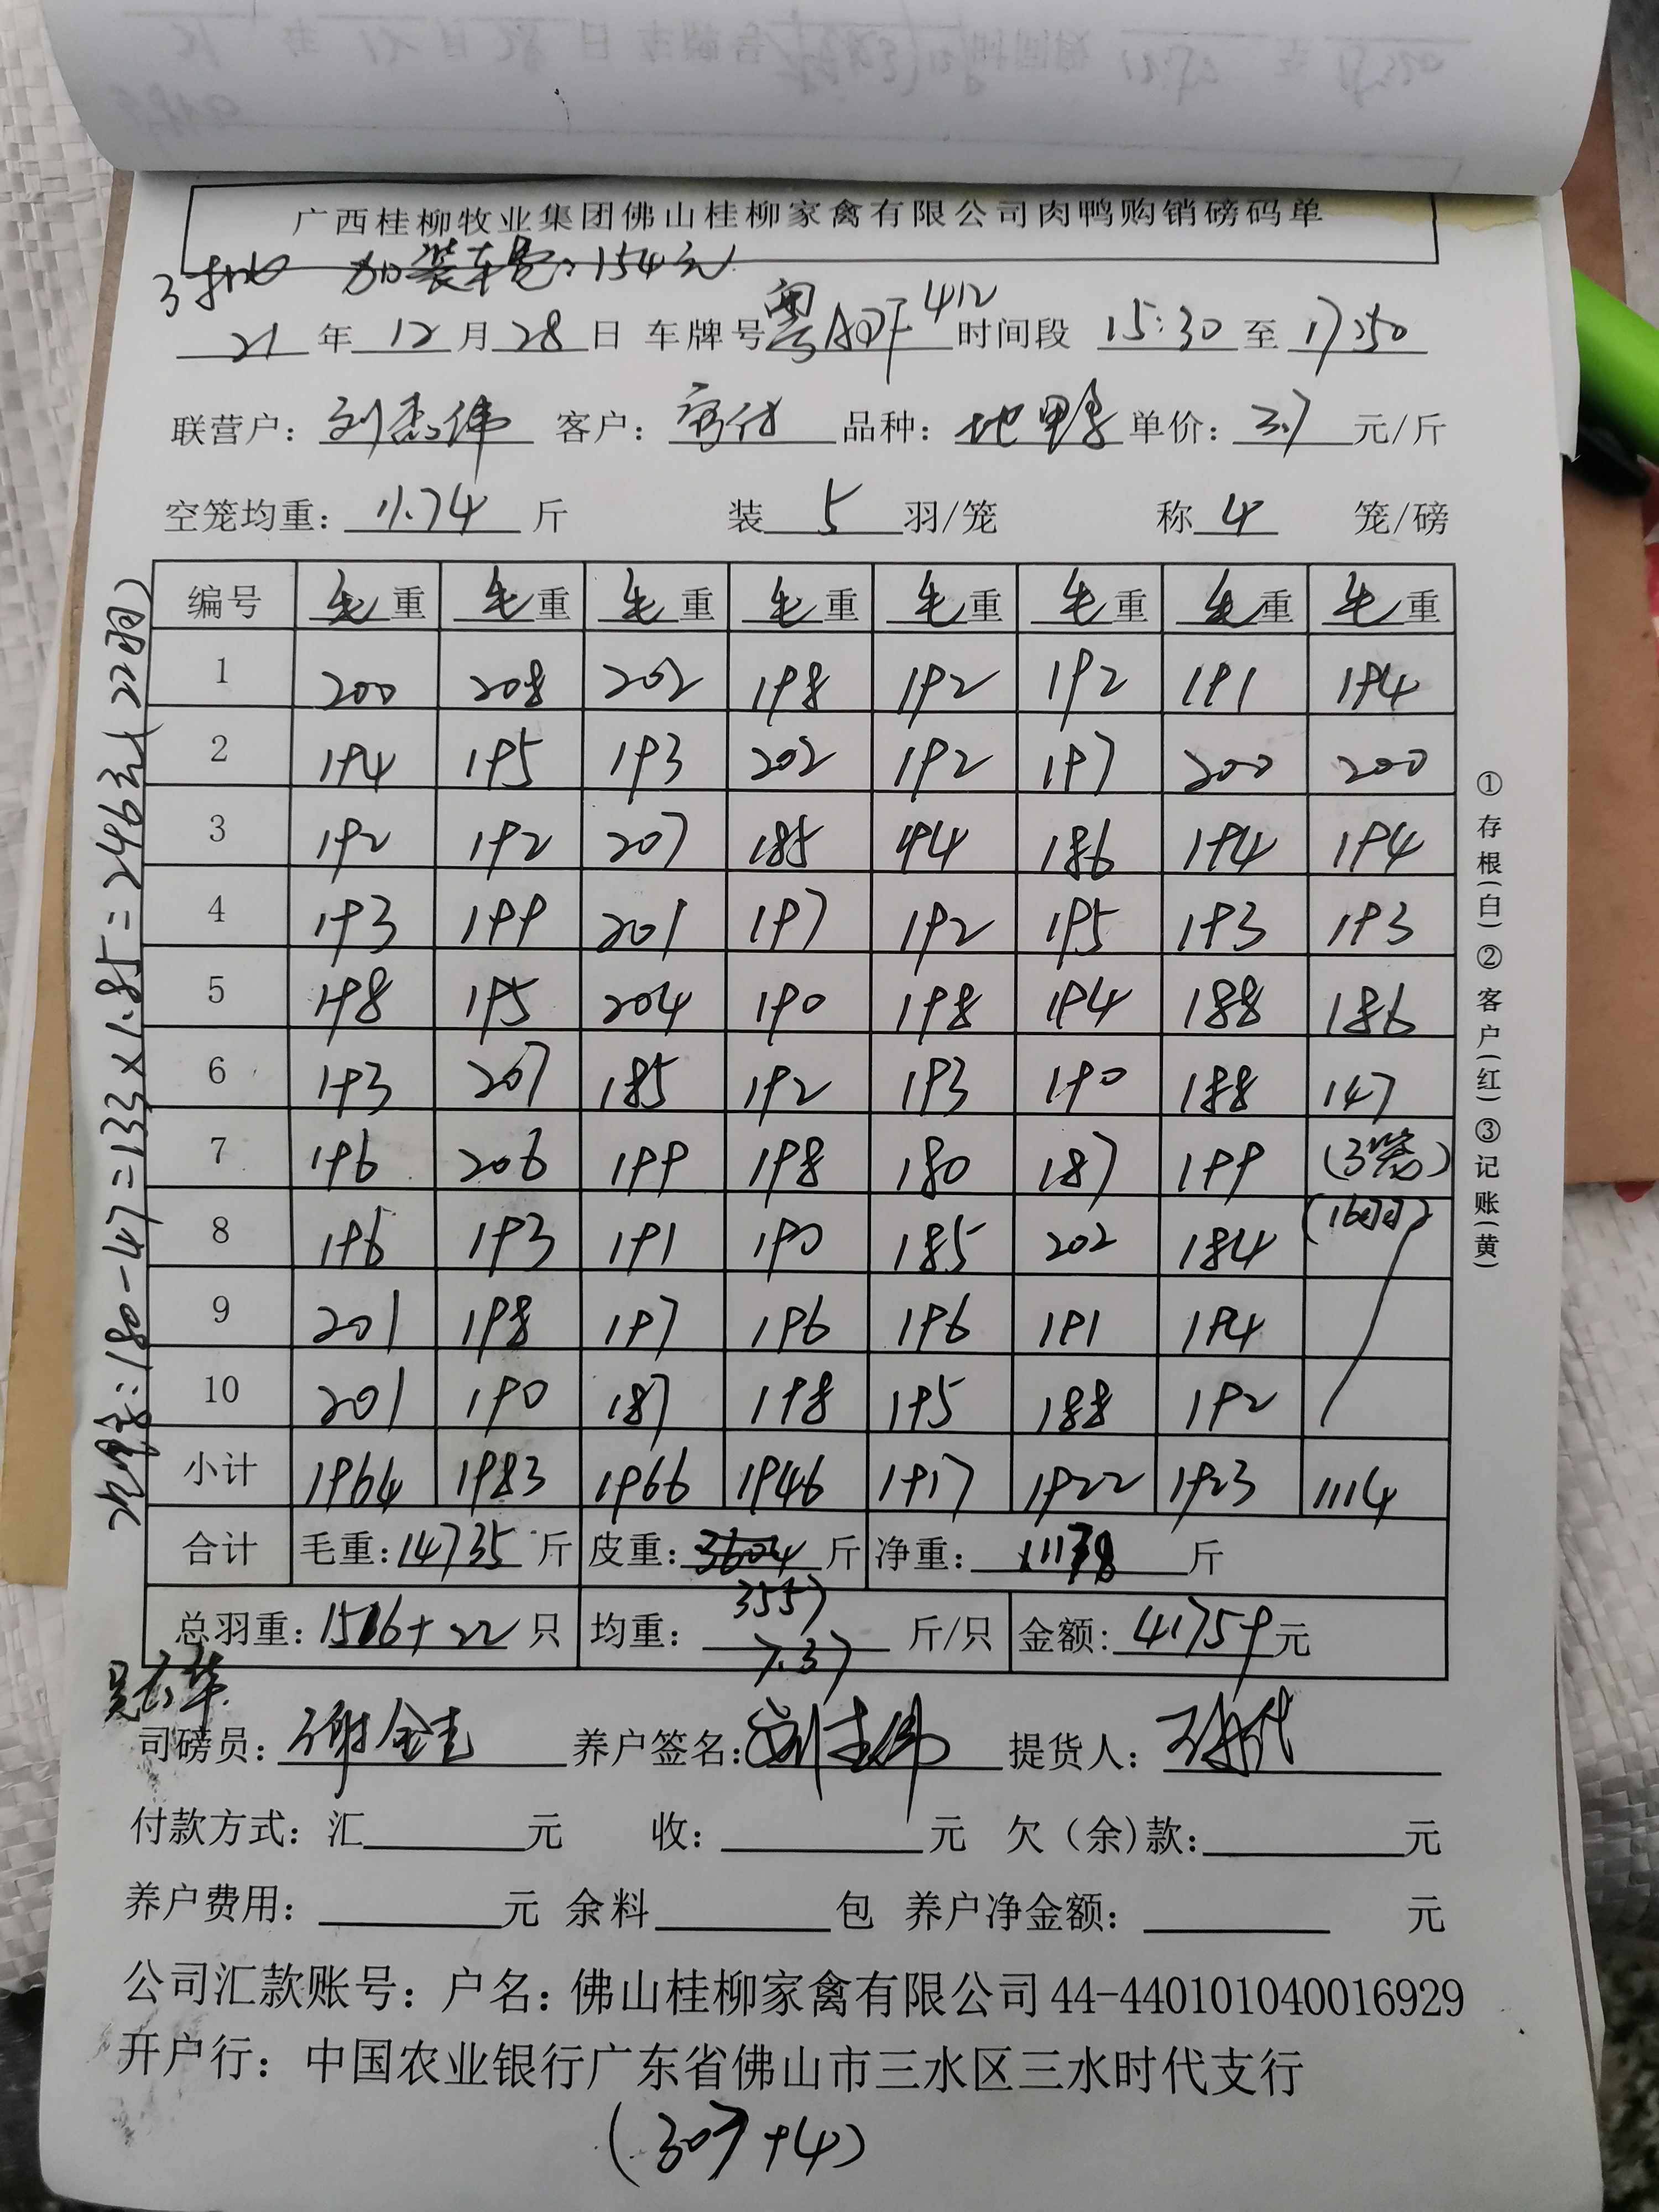 广西桂柳牧业集团佛山桂柳家禽有限公司肉鸭购销磅码单
3批 加装车费:154元
21年12月28日 车牌号粤ADF412 时间段 15:30至17:50
联营户:刘志伟 客户: 品种:地鸭 单价:3.7元/斤
空笼均重:11.74斤 装5羽/笼 称4笼/磅
编号 毛重 毛重 毛重 毛重 毛重 毛重 毛重 毛重
1 200 208 202 198 192 192 191 194
2 194 195 193 202 192 197 200 200
3 192 192 207 185 194 186 194 194
4 193 199 201 197 192 195 193 193
5 198 195 204 190 198 194 188 186
6 193 207 185 192 193 190 188 147
7 196 206 199 198 180 187 199 (3笼)
8 196 193 191 190 185 202 184 (16羽)
9 201 198 197 196 196 191 194
10 201 190 187 198 195 188 192
小计 1964 1983 1966 1946 1917 1922 1923 1114
合计 毛重:14735斤 皮重:3604斤 净重:11178斤
3557
总羽重:1516+22只 均重:7.37斤/只 金额:41759元
司磅员:谢金 养户签名:刘志伟 提货人:
付款方式:汇 元 收: 元 欠(余)款: 元
养户费用: 元 余料 包 养户净金额: 元
公司汇款账号:户名:佛山桂柳家禽有限公司44-440101040016929
开户行:中国农业银行广东省佛山市三水区三水时代支行
(307+4)
180-47=133×1.85=246元(22羽)
①存根(白)②客户(红)③记账(黄)